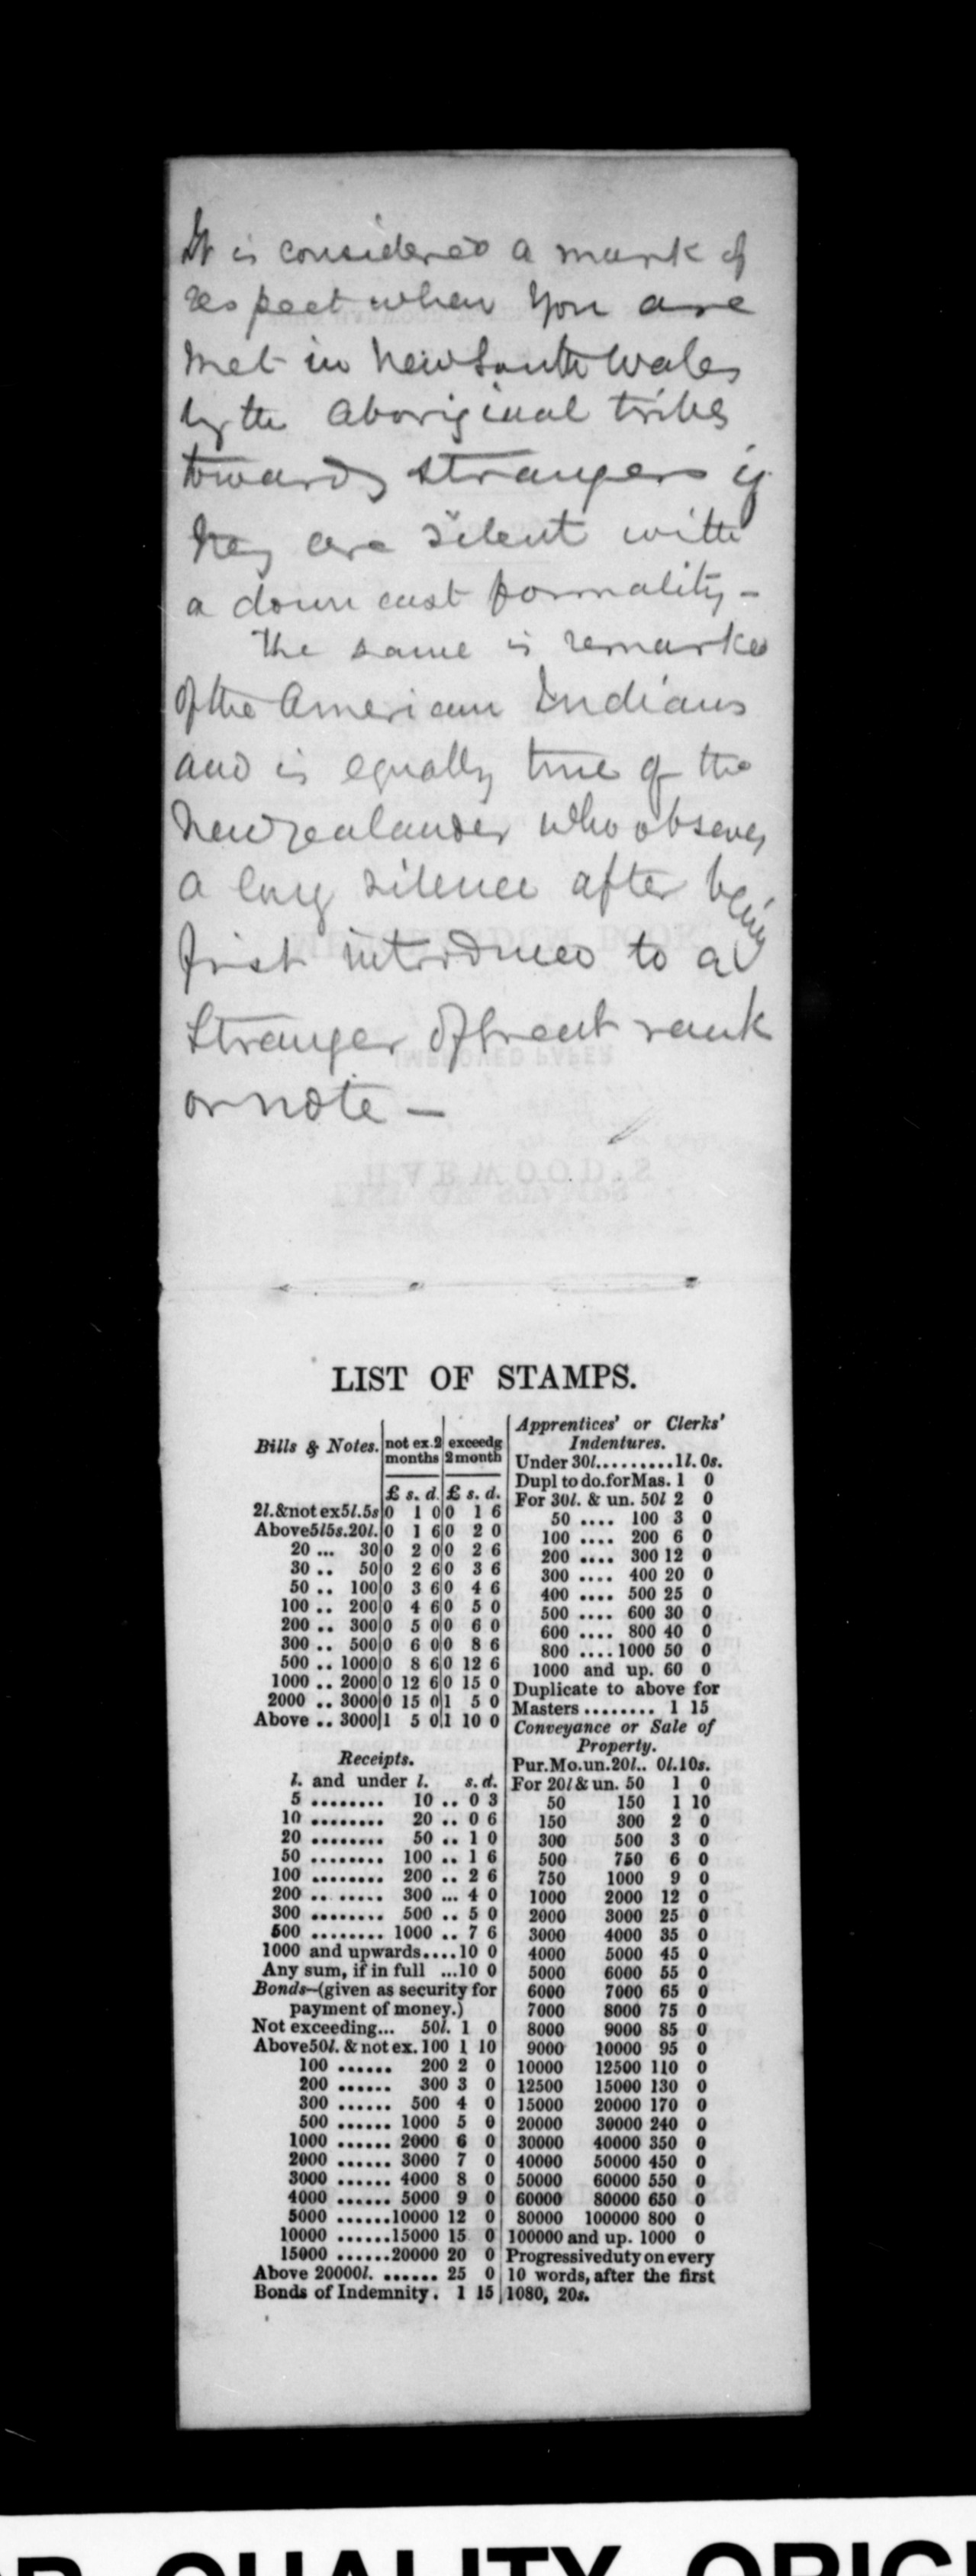 It is considered a mark of
respect when you are
met in New South Wales
by the aboriginal tribes
towards strangers if
they are silent with
a down cast formality -
The same is remarked
of the American Indians
and is equally true of the
New Zealander who observes
a long silence after being
first introduced to a
Stranger of Great rank
or note -
LIST OF STAMPS.
Bills & Notes. not ex.2 months exceedg 2 month
£ s. d. £ s. d.
2l.&not ex5l.5s 0 1 0 0 1 6
Above5l5s.20l. 0 1 6 0 2 0
20 ... 30 0 2 0 0 2 6
30 .. 50 0 2 6 0 3 6
50 .. 100 0 3 6 0 4 6
100 .. 200 0 4 6 0 5 0
200 .. 300 0 5 0 0 6 0
300 .. 500 0 6 0 0 8 6
500 .. 1000 0 8 6 0 12 6
1000 .. 2000 0 12 6 0 15 0
2000 .. 3000 0 15 0 1 5 0
Above .. 3000 1 5 0 1 10 0
Receipts.
l. and under l. s. d.
5 ........ 10 .. 0 3
10 ........ 20 .. 0 6
20 ........ 50 .. 1 0
50 ........ 100 .. 1 6
100 ........ 200 .. 2 6
200 .. ...... 300 ... 4 0
300 ........ 500 .. 5 0
500 ........ 1000 .. 7 6
1000 and upwards....10 0
Any sum, if in full ...10 0
Bonds-(given as security for
payment of money.)
Not exceeding... 50l. 1 0
Above50l. & not ex. 100 1 10
100 ...... 200 2 0
200 ...... 300 3 0
300 ...... 500 4 0
500 ...... 1000 5 0
1000 ...... 2000 6 0
2000 ...... 3000 7 0
3000 ...... 4000 8 0
4000 ...... 5000 9 0
5000 ......10000 12 0
10000 ......15000 15 0
15000 ......20000 20 0
Above 20000l. ...... 25 0
Bonds of Indemnity. 1 15
Apprentices' or Clerks'
Indentures.
Under 30l.........1l. 0s.
Dupl to do.for Mas. 1 0
For 30l. & un. 50l 2 0
50 .... 100 3 0
100 .... 200 6 0
200 .... 300 12 0
300 .... 400 20 0
400 .... 500 25 0
500 .... 600 30 0
600 .... 800 40 0
800 ....1000 50 0
1000 and up. 60 0
Duplicate to above for
Masters ........ 1 15
Conveyance or Sale of
Property.
Pur.Mo.un.20l.. 0l.10s.
For 20l & un. 50 1 0
50 150 1 10
150 300 2 0
300 500 3 0
500 750 6 0
750 1000 9 0
1000 2000 12 0
2000 3000 25 0
3000 4000 35 0
4000 5000 45 0
5000 6000 55 0
6000 7000 65 0
7000 8000 75 0
8000 9000 85 0
9000 10000 95 0
10000 12500 110 0
12500 15000 130 0
15000 20000 170 0
20000 30000 240 0
30000 40000 350 0
40000 50000 450 0
50000 60000 550 0
60000 80000 650 0
80000 100000 800 0
100000 and up. 1000 0
Progressive duty on every
10 words, after the first
1080, 20s.
QUALITY